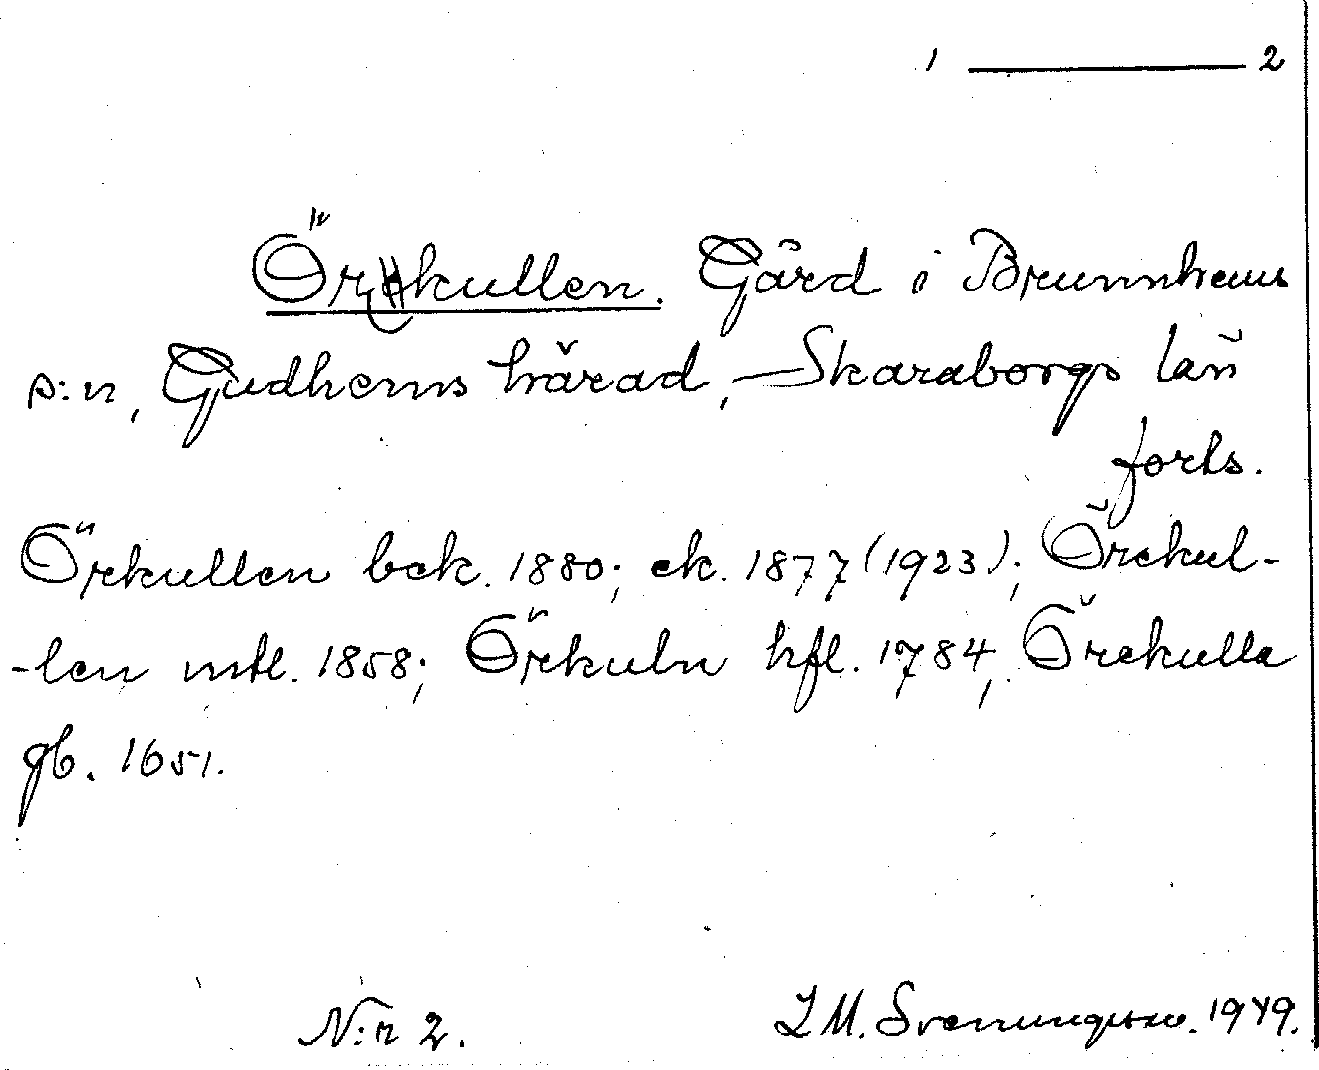 1 — 2
Örkullen. Gård i Brunnhems
s:n, Gudhems härad, Skaraborgs län
forts.
Örkullen bek. 1880; ek. 1877 (1923); Örekul-
-len mtl. 1858; Örkuln hfl. 1784, Örekulla
gb. 1651.
N:r 2. I M. Svenungsson. 1949.